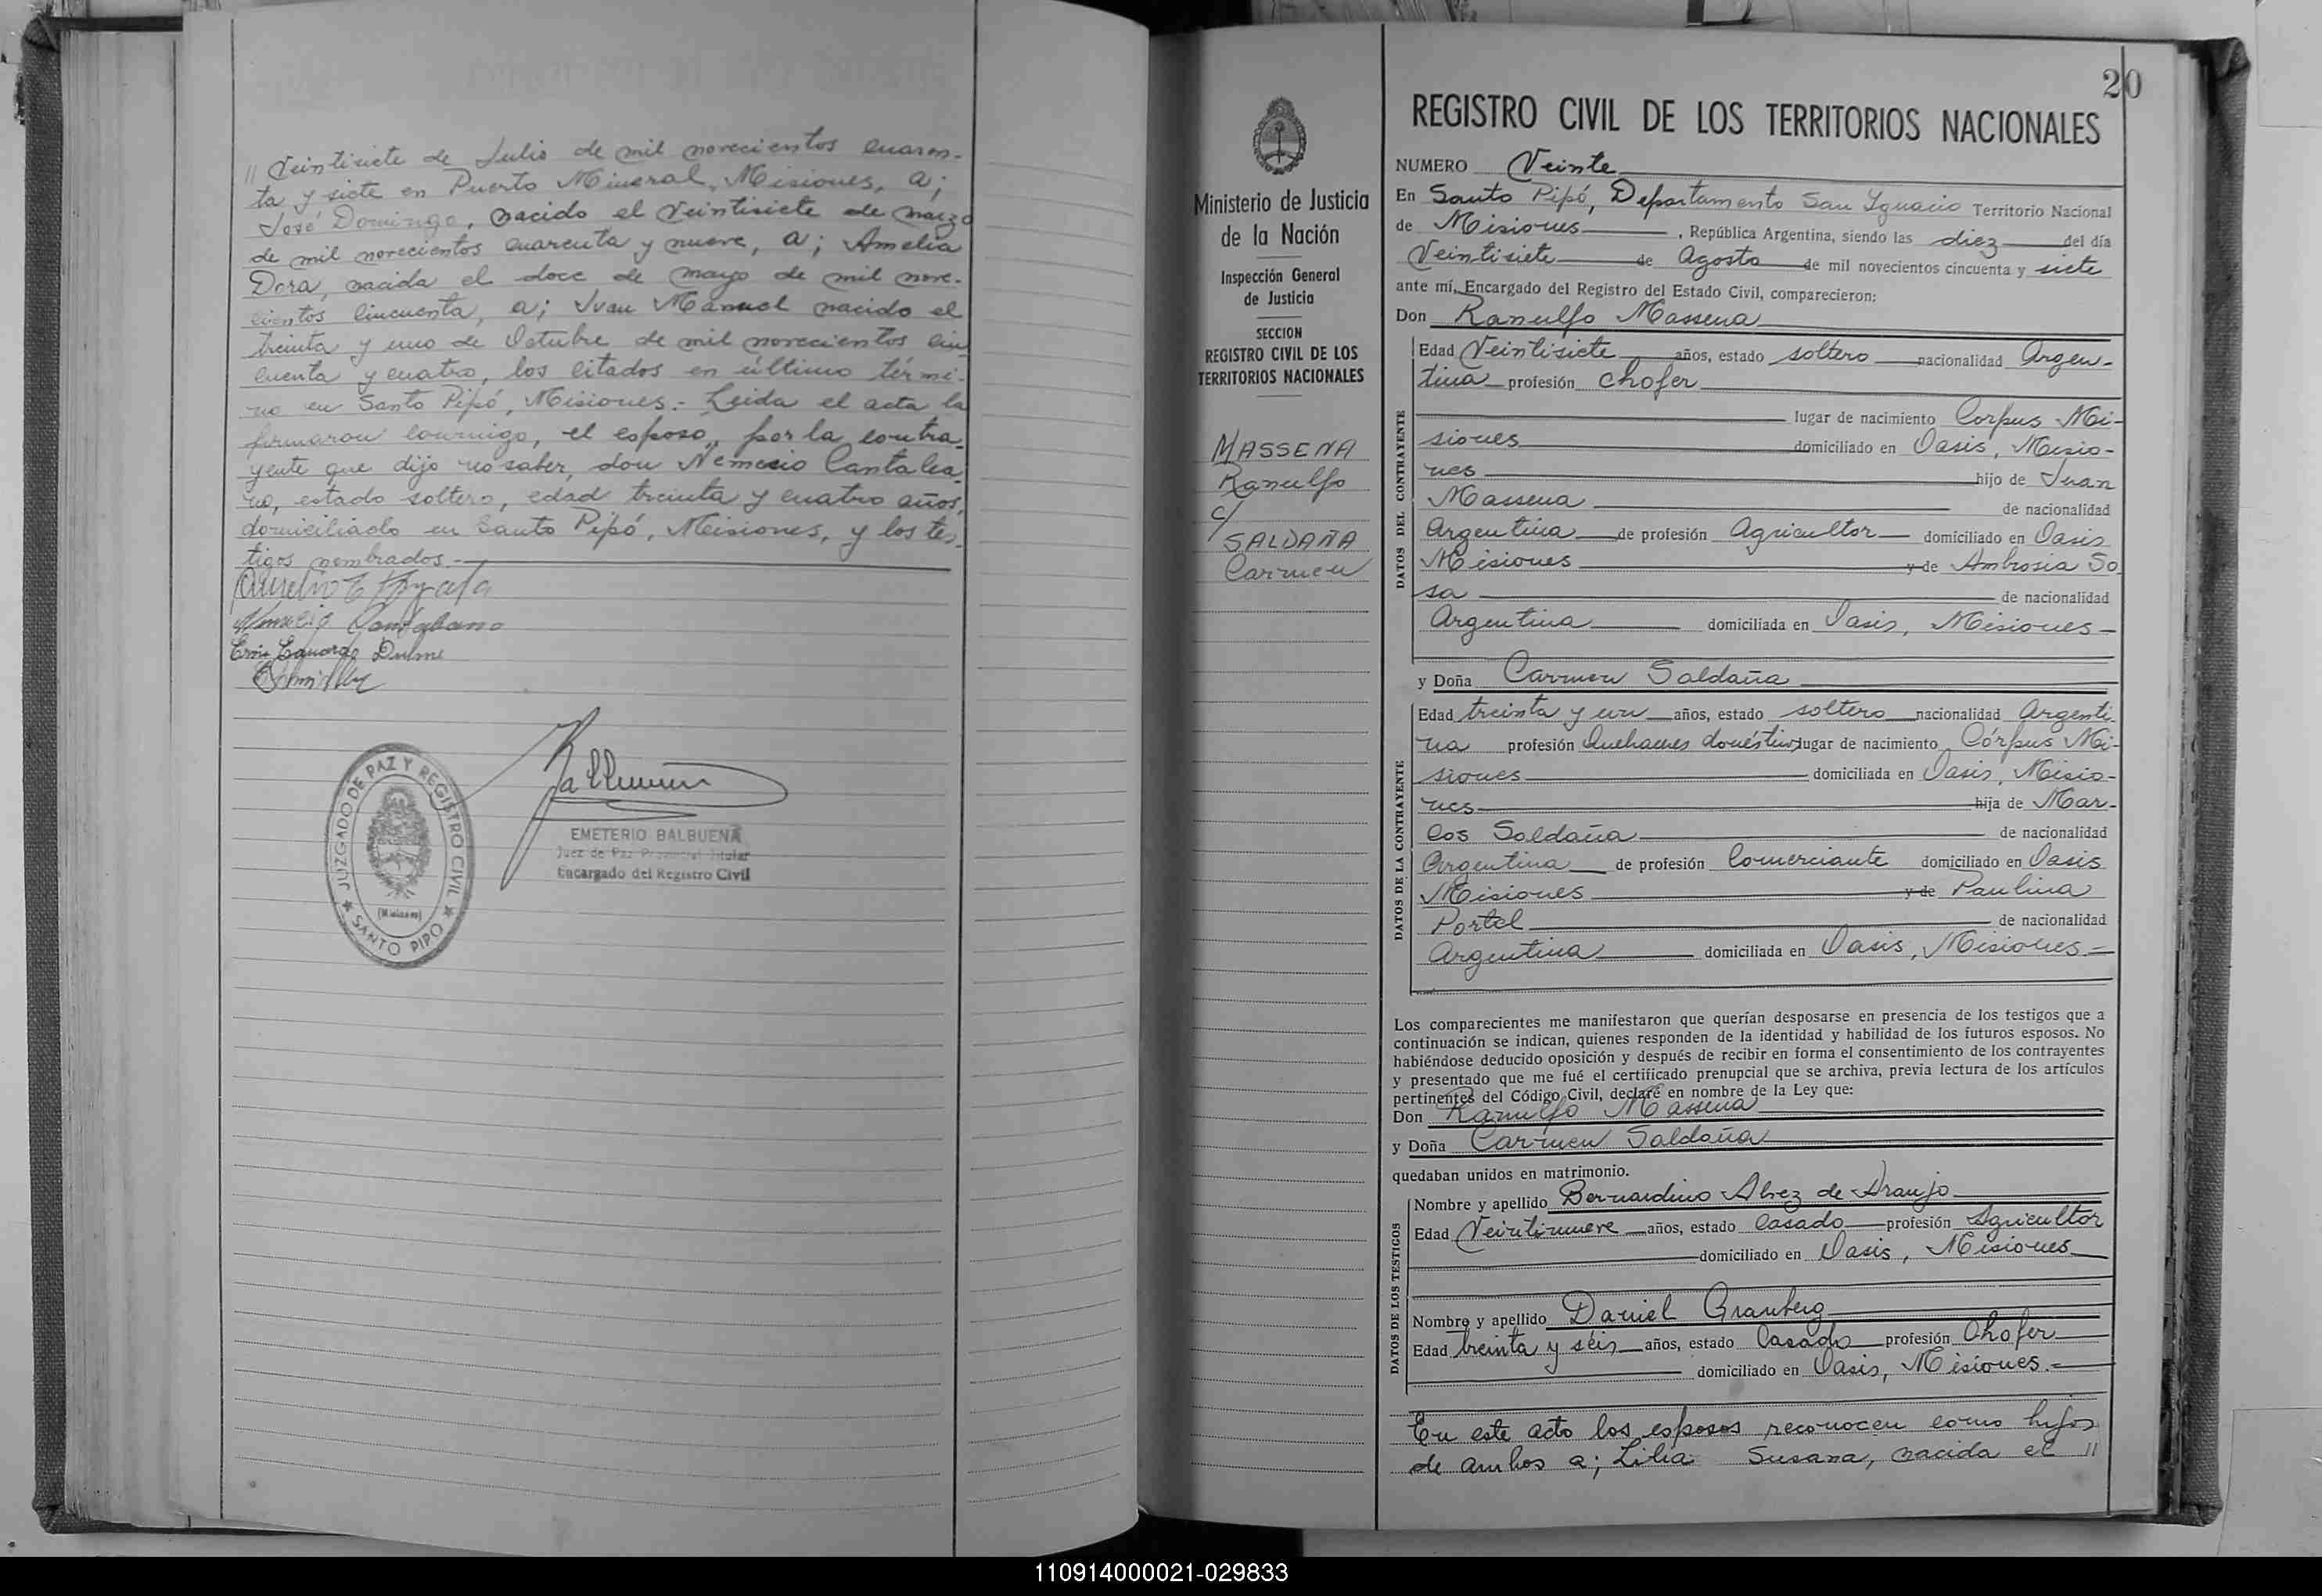 " Veintisiete de Julio de mil novecientos cuaren-
ta y siete en Puerto Mineral, Misiones, a;
José Domingo, nacido el Veintisiete de marzo
de mil novecientos cuarenta y nueve, a; Amelia
Dora, nacida el doce de mayo de mil nove-
cientos cincuenta, a; Juan Manuel nacido el
treinta y uno de Octubre de mil novecientos cin
cuenta y cuatro, los citados en último térmi-
no en Santo Pipó, Misiones.- Leida el acta la
firmaron conmigo, el esposo, por la contra-
yente que dijo no saber, don Nemesio Cantalea
no, estado soltero, edad treinta y cuatro años,
domiciliado en Santo Pipó, Misiones, y los tes-
tigos nombrados.-
Eduardo Dulme
EMETERIO BALBUENA
Juez de Paz Titular
Encargado del Registro Civil
JUZGADO DE PAZ Y REGISTRO CIVIL
(Misiones)
SANTO PIPO
Ministerio de Justicia
de la Nación
Inspección General
de Justicia
SECCION
REGISTRO CIVIL DE LOS
TERRITORIOS NACIONALES
MASSENA
Ranulfo
c/
SALDAÑA
Carmen
20
REGISTRO CIVIL DE LOS TERRITORIOS NACIONALES
NUMERO Veinte
En Santo Pipó, Departamento San Ygnacio Territorio Nacional
de Misiones, República Argentina, siendo las diez del día
Veintisiete de Agosto de mil novecientos cincuenta y siete
ante mí, Encargado del Registro del Estado Civil, comparecieron:
Don Ranulfo Massena
DATOS DEL CONTRAYENTE
Edad Veintisiete años, estado soltero nacionalidad Argen-
tina profesión chofer
lugar de nacimiento Corpus Mi-
siones domiciliado en Oasis, Misio-
nes hijo de Juan
Massena de nacionalidad
Argentina de profesión Agricultor domiciliado en Oasis
Misiones y de Ambrosia So
sa de nacionalidad
Argentina domiciliada en Oasis, Misiones-
y Doña Carmen Saldaña
DATOS DE LA CONTRAYENTE
Edad treinta y un años, estado soltero nacionalidad Argenti-
na profesión Quehaceres domésticos lugar de nacimiento Córpus Mi-
siones domiciliada en Oasis, Misio-
nes hija de Mar-
cos Saldaña de nacionalidad
Argentina de profesión Comerciante domiciliado en Oasis
Misiones y de Paulina
Portel de nacionalidad
Argentina domiciliada en Oasis, Misiones.-
Los comparecientes me manifestaron que querían desposarse en presencia de los testigos que a
continuación se indican, quienes responden de la identidad y habilidad de los futuros esposos. No
habiéndose deducido oposición y después de recibir en forma el consentimiento de los contrayentes
y presentado que me fué el certificado prenupcial que se archiva, previa lectura de los artículos
pertinentes del Código Civil, declaré en nombre de la Ley que:
Don Ranulfo Massena
y Doña Carmen Saldaña
quedaban unidos en matrimonio.
DATOS DE LOS TESTIGOS
Nombre y apellido Bernardino Alvez de Araujo
Edad Veintinueve años, estado Casado profesión Agricultor
domiciliado en Oasis, Misiones
Nombre y apellido Daniel Granberg
Edad treinta y séis años, estado Casado profesión Chofer
domiciliado en Oasis, Misiones.-
En este acto los esposos reconocen como hijos
de ambos a; Lilia Susana, nacida el "
110914000021-029833